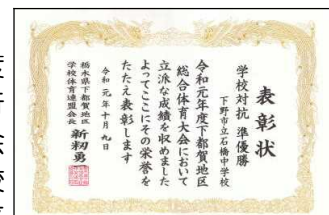 表彰状
学校対抗 準優勝
下野市立石橋中学校
令和元年度下都賀地区
総合体育大会において
立派な成績を収めました
よってここにその栄誉を
たたえ表彰します
令和元年十月九日
栃木県下都賀地区
学校体育連盟会長 新籾勇